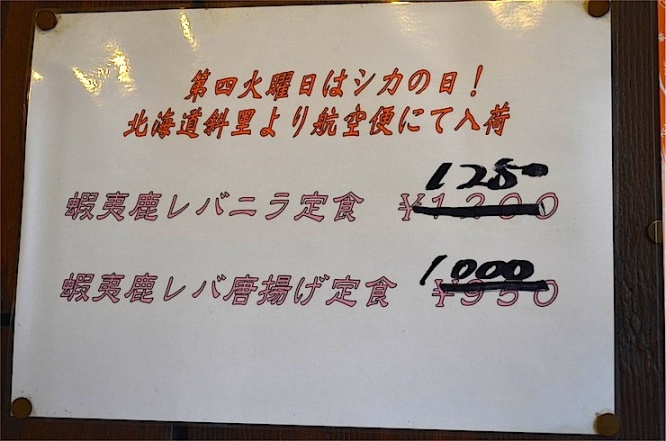 第四火曜日はシカの日！
北海道斜里より航空便にて入荷
1250
蝦夷鹿レバニラ定食 ￥1200
1000
蝦夷鹿レバ唐揚げ定食 ￥950